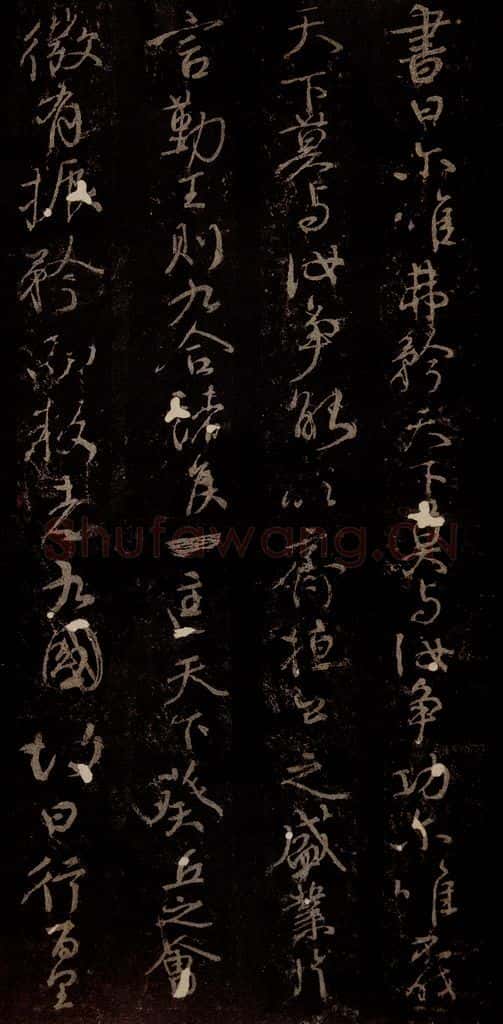 書曰尓唯弗矜天下莫与汝争功尓唯弗伐
天下莫与汝争能以齊桓公之盛業片
言勤王則九合諸侯一匡天下葵丘之會
微有振矜而叛者九國故曰行百里
Shufawang.CN